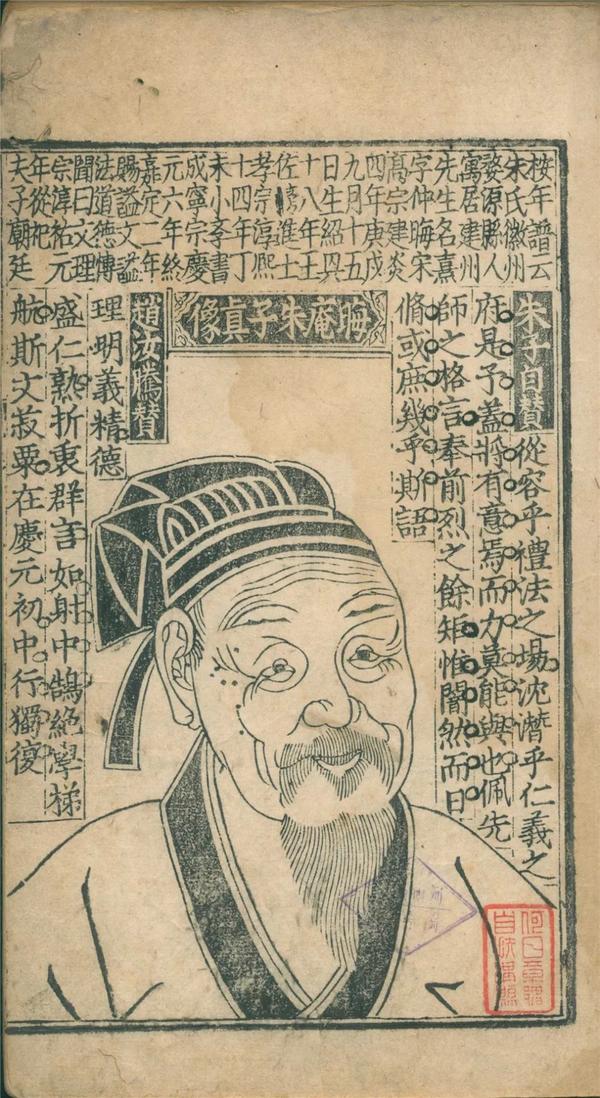 按年譜云
朱氏徽州
婺源縣人
寓居建州
先生名熹
字仲晦宋
髙宗建炎
四年庚戌
九月十五
日生紹興
十八年王
佐榜進士
孝宗淳熙
十四年丁
未小季書
成寧宗慶
元六年終
嘉定二年
賜謚文謚
法道德傳
聞曰文理
宗淳祐元
年從祀
夫子廟廷
朱子自贊
從容乎禮法之塲沈潛乎仁義之
府是子蓋將有意焉而力莫能與也佩先
師之格言奉前烈之餘矩惟闇然而日
脩或庶幾乎斯語
晦庵朱子真像
趙汝騰贊
理明義精德
盛仁熟折衷群言如射中鵠絶學梯
航斯文菽粟在慶元初中行獨復